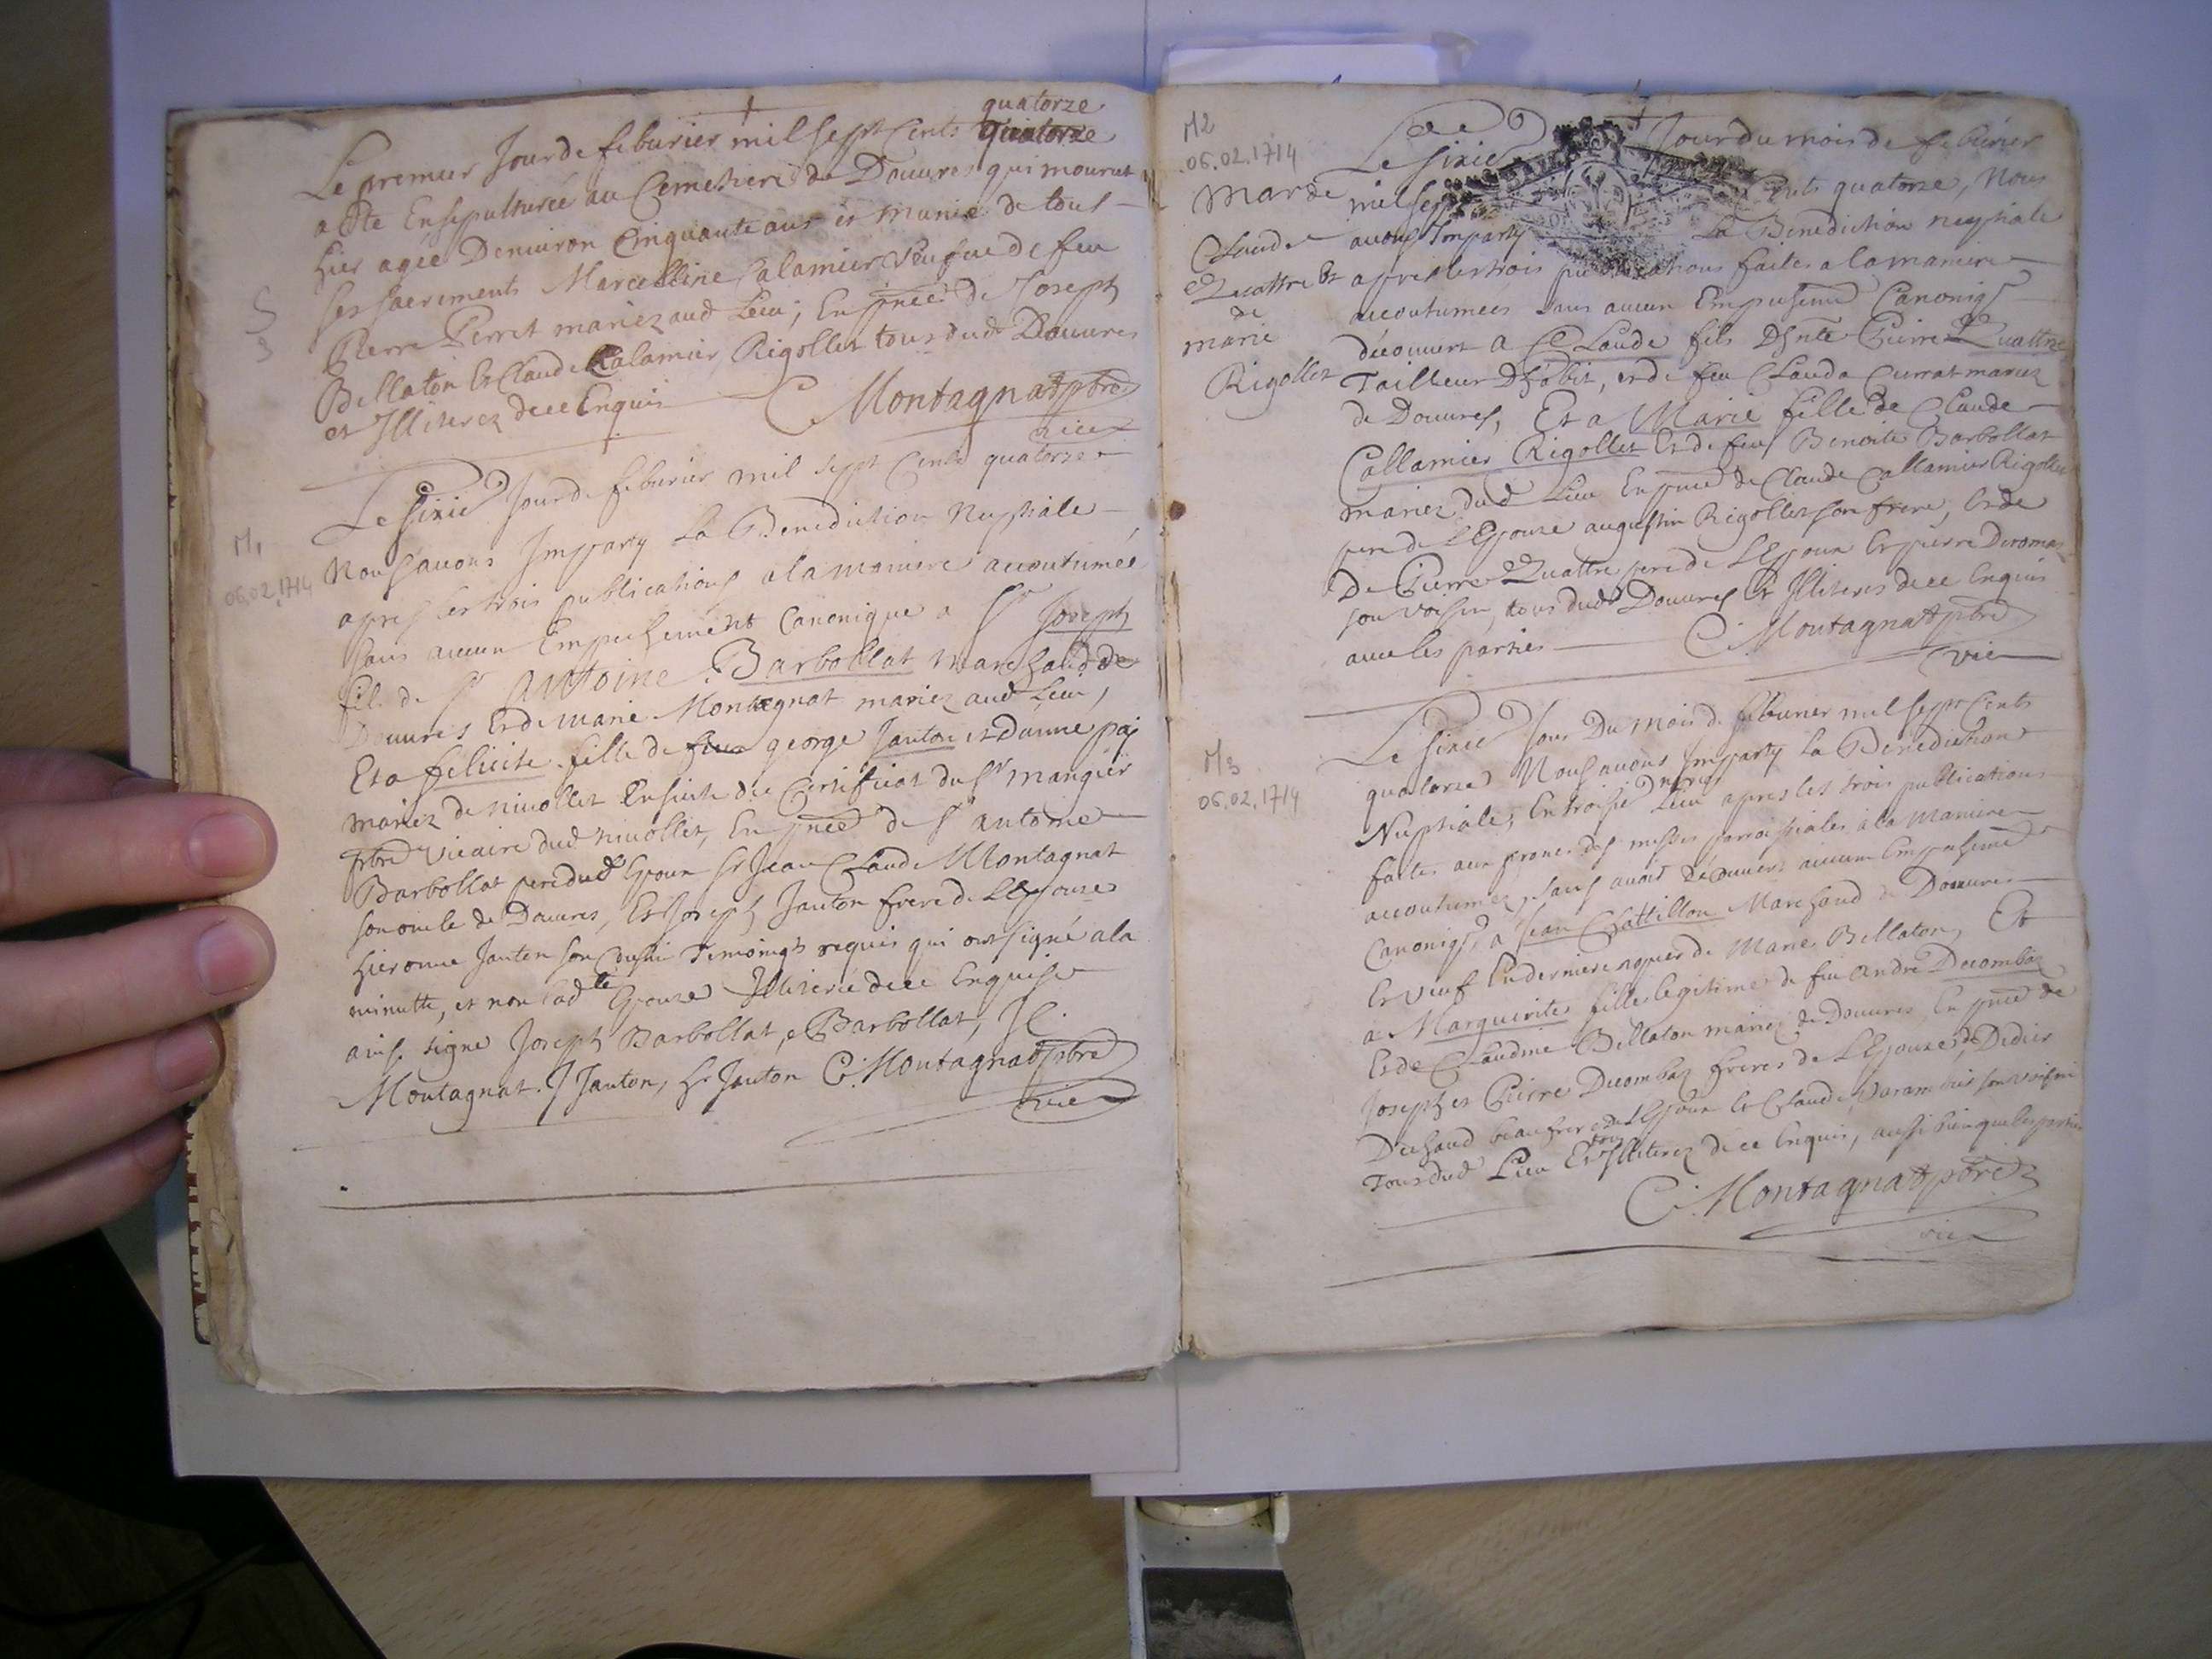 quatorze
Le premier Jour de feburier mil sept Cents quatorze
a êtte Ensepulturée au Cemetiere de Douures qui mourut
hier agée Denuiron Cinquante ans et munie de tous
ses sacrements Marcelline Calamier veufue de feu
Pierre Perret mariez aud Lieu, En pnce de Joseph
Bellaton Et Claude Calamier, Rigollet tous dud Douures
et Illiterez de ce Enquis
C Montagnat ptre
vice
S
3
Le sixie Jour de feburier mil sept Cents quatorze
M1
06.02.1714
Nous auons Imparty La Benediction Nuptiale
apres les trois publications a la maniere accoutumée
sans aucun Empechement Canonique a Sr Joseph
fil. de Sr Antoine Barbollat marchand de
Douures Et de marie Montagnat mariez aud Lieu,
Et a felicite fille de feu george Janton et Danne
mariez de niuollet Ensuite du Certificat du Sr mangier
ptre vicaire dud niuollet, En pnce de Sr antoine
Barbollat pere dud Epoux Sr Jean Claude Montagnat
son oncle de Douures, Et Joseph Janton frere de LEpouse
hieronme Janton son Cousin Temoings requis qui ont signé a la
minutte, et non lad te Epouse Illiterée de ce Enquise
ainsi signe Joseph Barbollat, Barbollat, J C.
Montagnat. J Janton, hr Janton C. Montagnat ptre
vice
M2
06.02.1714
Mar de
Claude
Quattre Et
de
marie
Rigollet
Le sixie Jour du mois de feburier
mil sept Cents quatorze, Nous
auons Imparty La Benediction nuptiale
apres les trois publications faites a la maniere
accoutumees sans aucun Empechemt Canoniq
decouuert a Claude fils Pierre Quattre
Tailleur Dhabit, et de feu Clauda Currat mariez
de Douures, Et a Marie fille de Claude
Callamier Rigollet Et de feu Benoite Barbollat
mariez dud Lieu En pnce de Claude Callamier Rigollet
pere de LEpouse augustin Rigollet son frere, Et de
De Pierre Quattre pere de LEpoux Et pierre Deromas
son voisin, tous dud Douures Et Illiteres de ce Enquis
auec les parties
C. Montagnat ptre
vice
M3
06.02.1714
Le sixie Jour Du mois de feburier mil sept Cents
quatorze Nous auons Imparty La Benediction
Nuptiale, En troisie Lieu apres les trois publications
faites aux prones des messes parroissiales a la maniere
accoutumez, sans auoir decouuert aucun Empechemt
Canoniq, a Jean Chattillon Marchand de Douures
Et veuf En derniere nopces de Marie Bellaton, Et
a Marguerites fille legitime de feu andré Decombaz
Et de Claudine Bellaton mariez de Douures, En pnce de
Joseph et Pierre Decombaz freres de LEpouse, Didier
Dechaud beaufrere de LEpoux Et Claude Varambier son voisin
Tous dud Lieu Et tous Illiterez de ce Enquis, aussi bien que les parties
C. Montagnat ptre
vic